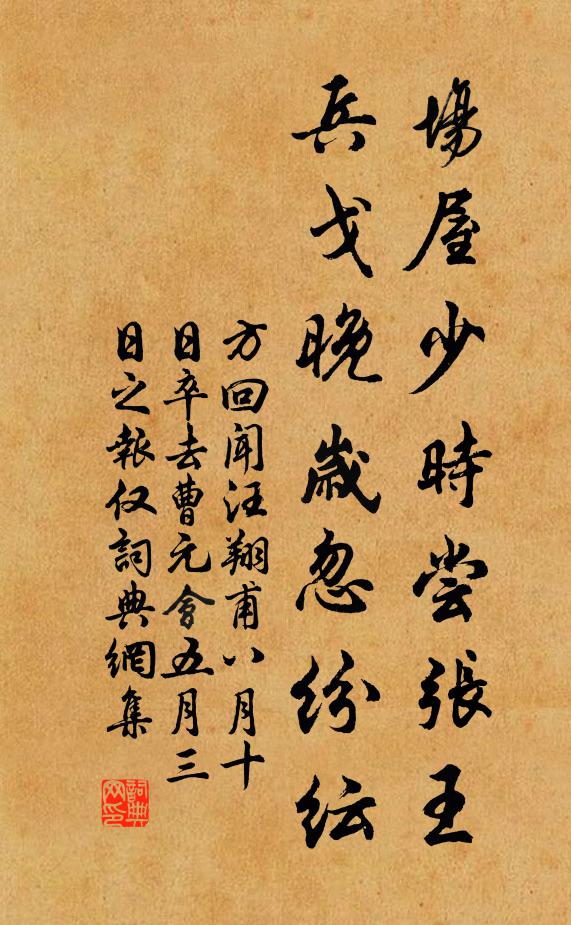 場屋少時尝張王
兵戈晚歲忽紛紜
方回闻汪翔甫八月十
日卒去曹元會五月三
日之報仅詞典網集
詞典网印